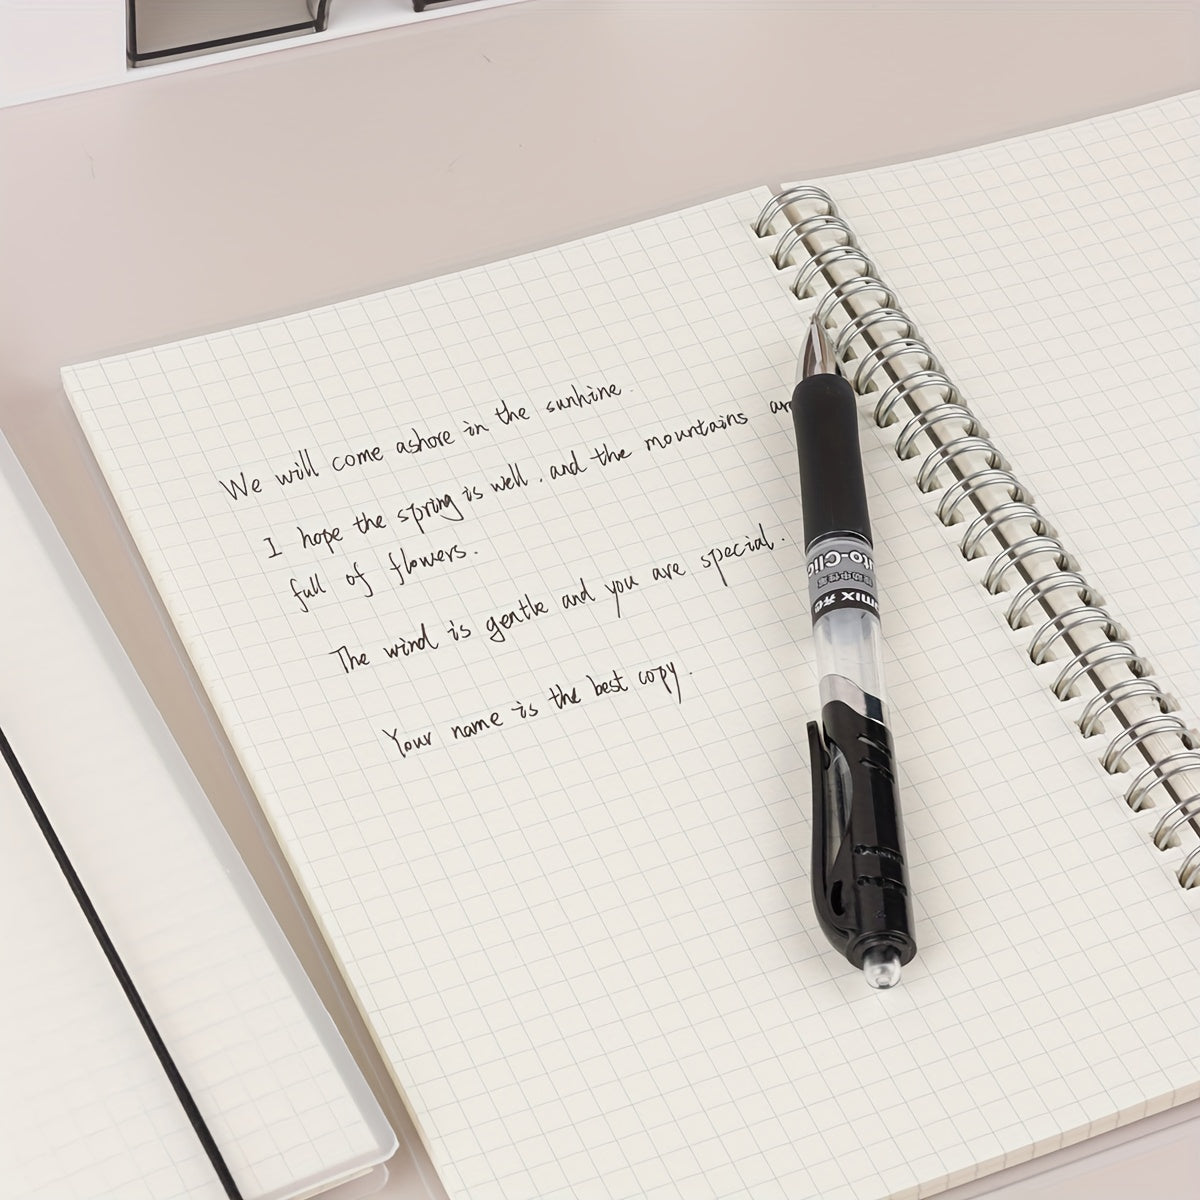 We will come ashore in the sunhine.
I hope the spring is well, and the mountains
full of flowers.
The wind is gentle and you are special.
Your name is the best copy.